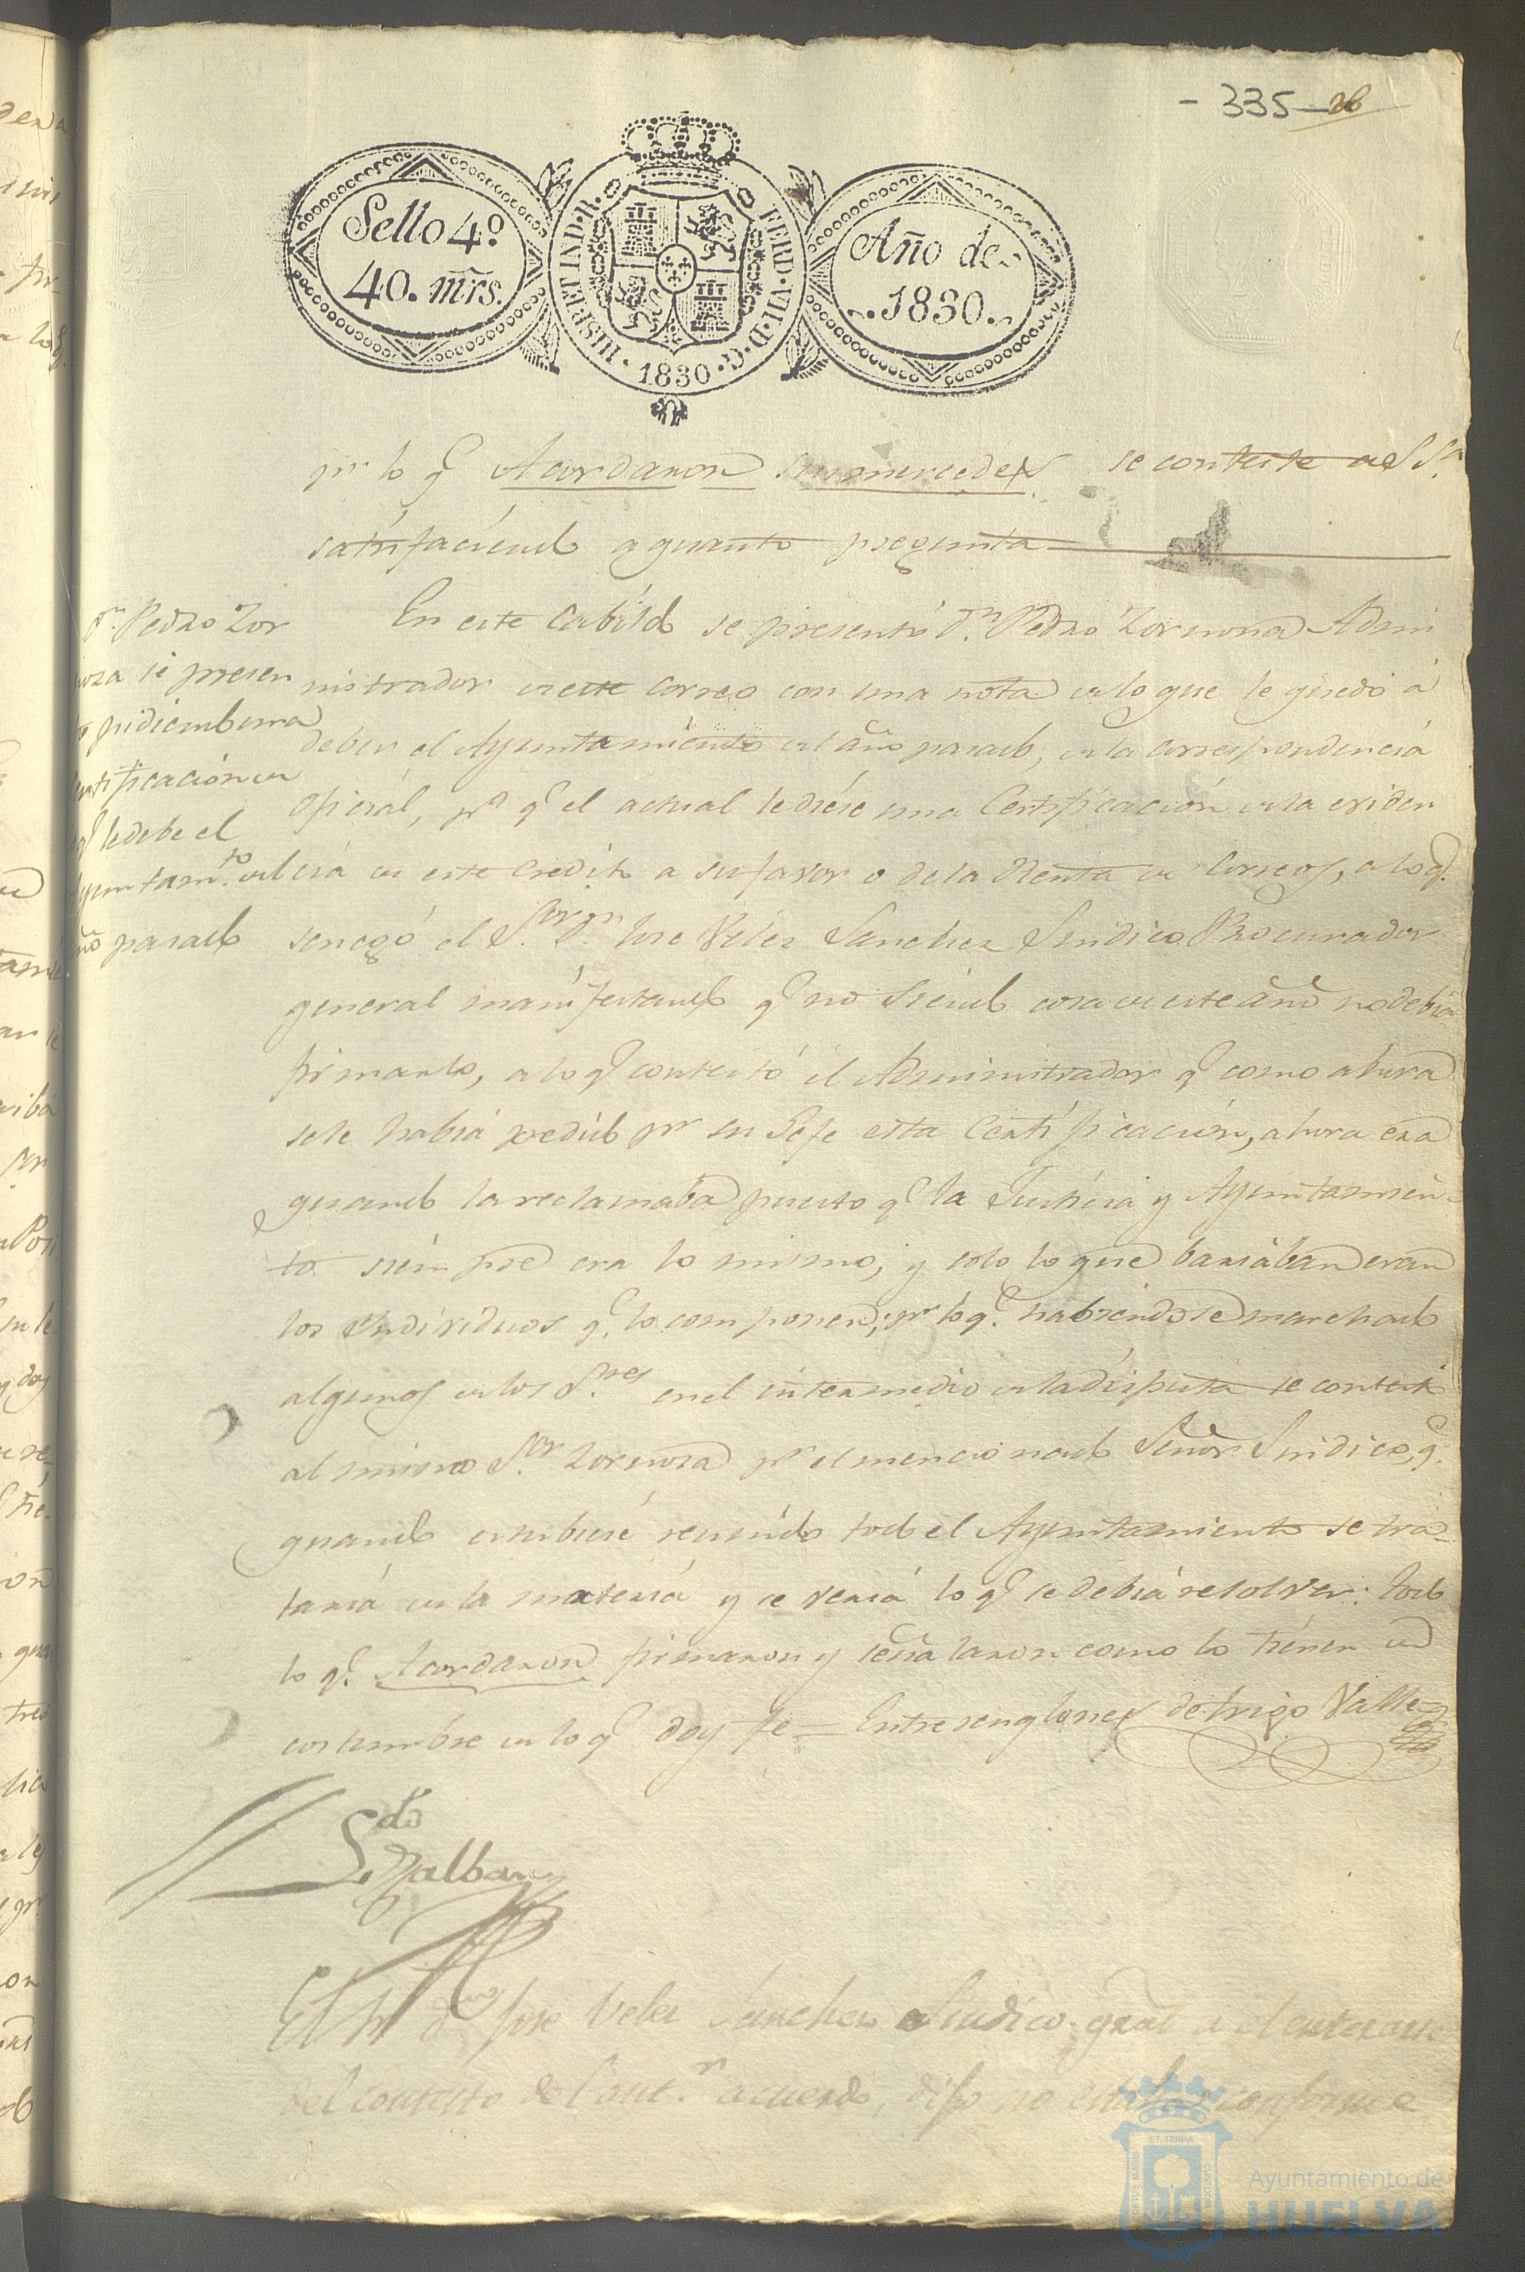 - 335 - 26
Sello 4º
40. mrs.
HISP. ET IND. R.
FERD. VII. D. G.
1830
Año de
1830
pr. lo q.e Acordaron sus mercedes se conteste a S.Sa.
satisfaciendo a quanto pregunta
Dn. Pedro Zor
noza se presen
to pidiendo una
Certificación de
q.e le debe el
Ayuntam.to del
año pasado
En este Cabildo se presentó Dn. Pedro Zornoza Admi
nistrador de este Correo con una nota de lo que le quedó á
deber el Ayuntamiento el año pasado, de la correspondencia
oficial, pa. q.e el actual le diese una Certificación de la eviden
cia de este credito a su favor o de la Renta de Correos, a lo q.e
se negó el S.or Dn. Jose Velez Sanchez Sindico Procurador
general manifestando q.e no siendo cosa de este año no debia
firmarlo, a lo q.e contestó el Administrador q.e como ahora
se le habia pedido pr. su Jefe esta Certificación, ahora era
quando la reclamaba puesto q.e la Justicia y Ayuntamien-
to siempre era lo mismo, y solo lo que bariaban eran
los Individuos q.e lo componen; pr. lo q.e habiendose marchado
algunos de los S.res en el intermedio de la disputa se contestó
al mismo S.or Zornoza pr. el mencionado Señor Sindico, q.e
quando estubiese reunido todo el Ayuntamiento se tra-
taria de la materia y se veria lo q.e se debia resolver: todo
lo q.e Acordaron firmaron y señalaron como lo tienen de
costumbre de lo q.e doy fe = Entrerenglones de trigo Valle=
El Sr. Dn. Jose Velez Sanchez Sindico gral. a el enterarse
del contesto del ant.r acuerdo, dijo no estaba conforme
ET TERRÆ
PORTUS MARIS
CUSTODIA
Ayuntamiento de
HUELVA